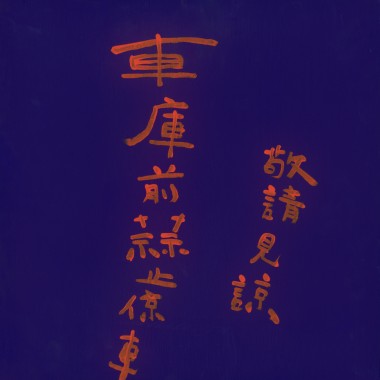 車庫前蒜止停車
敬請見諒